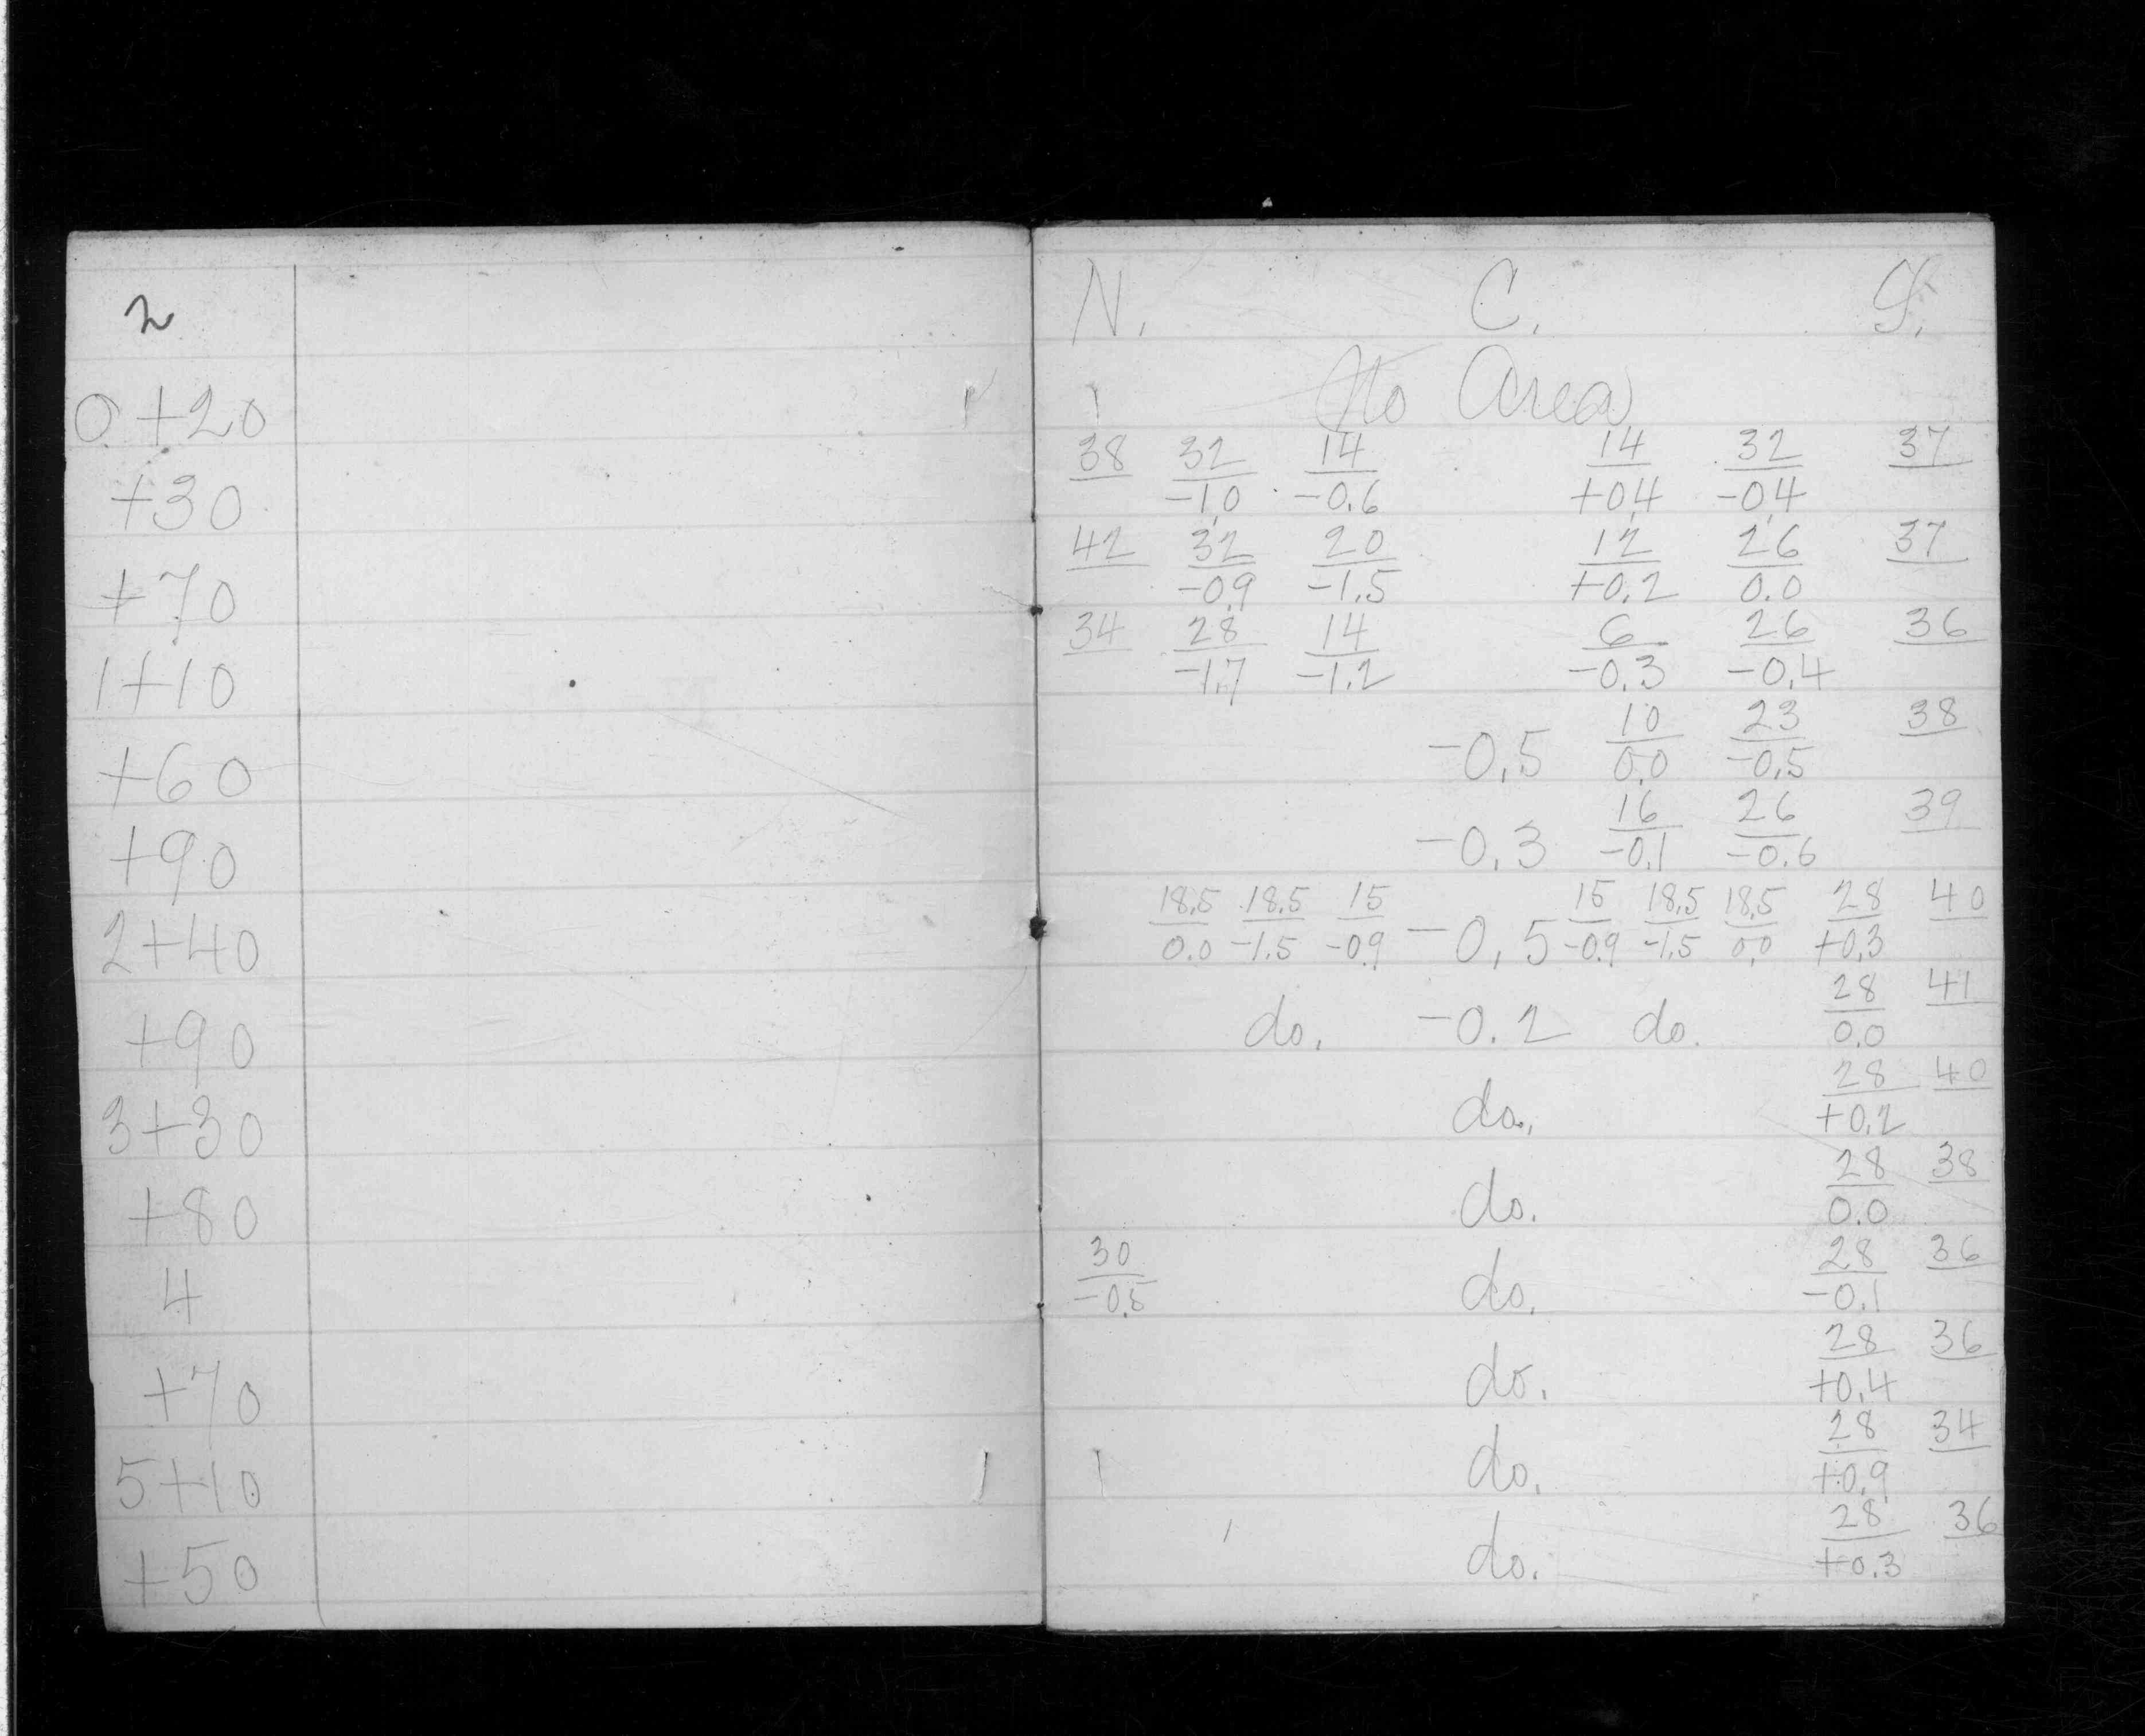 2
0+20
+30
+70
1+10
+60
+90
2+40
+90
3+30
+80
4
+70
5+10
+50
N. C. S.
No Area
38 32 14 14 32 37
-1.0 -0.6 +0.4 -0.4
42 32 20 12 26 37
-0.9 -1.5 +0.2 0.0
34 28 14 6 26 36
-1.7 -1.2 -0.3 -0.4
10 23 38
-0.5 0.0 -0.5
16 26 39
-0.3 -0.1 -0.6
18.5 18.5 15 15 18.5 18.5 28 40
0.0 -1.5 -0.9 -0.5 -0.9 -1.5 0.0 +0.3
28 41
do. -0.2 do. 0.0
28 40
do. +0.2
28 38
do. 0.0
30 28 36
-0.5 do. -0.1
28 36
do. +0.4
28 34
do. +0.9
28 36
do. +0.3